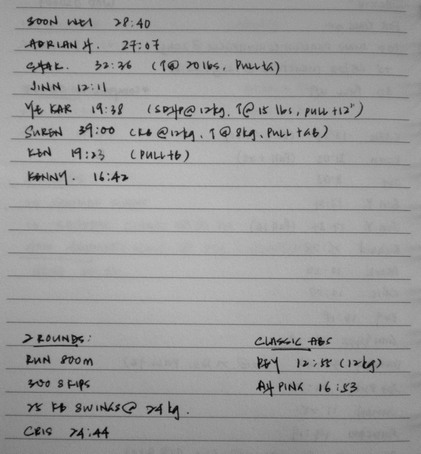 SOON WEI 28:40
ADRIAN H. 27:07
32:36 (T@ 20 lbs, PULL+G)
JINN 12:11
YE KAR 19:38 (SDHP@12kg, T@15 lbs, PULL+12")
SUREN 39:00 (KB@12kg, T@8kg, PULL+GB)
KEN 19:23 (PULL+B)
KENNY. 16:42
2 ROUNDS:
RUN 800m
300 SKIPS
25 KB SWINGS@ 24kg.
CRIS 24:44
CLASSIC ABS
REY 12:55 (12kg)
AH PING 16:53